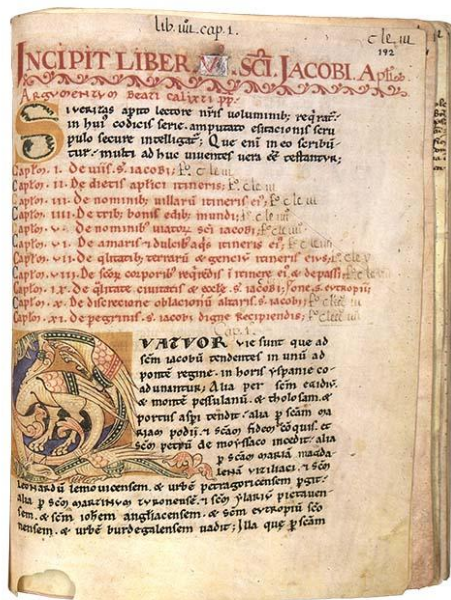 lib. iiij. cap. 1.
c le iii
192
INCIPIT LIBER .V. SCI. JACOBI. Aplico.
Argumentum Beati calixti pp.
SI veritas apito lectore nris voluminib; reqrat
in hui codicis serie. amputato esitacionis scru
pulo secure intelligat; Que eni in eo scribū
tur. multi ad huc viventes vera eē testantur;
Caplm. I. De viis. s. iacobi;
Caplm. II. De dietis aplici itineris;
Caplm. III. De nominib; villarū itineris ei;
Caplm. IIII. De trib; bonis edib; mundi;
Caplm. V. De nominib; viator sci iacobi;
Caplm. VI. De amaris & dulcib; aqis itineris ei;
Caplm. VII. De qlitatib; terrarū & genciū itineris eius;
Caplm. VIII. De scor corporib; reqrēdis ī itinere ei & de passi
Caplm. IX. De qlitate civitatis & eccle. s. iacobi;
Caplm. X. De discrecione oblacionū altaris. s. iacobi;
Caplm. XI. De pegrinis. s. iacobi digne recipiendis;
Cap. 1.
QUATUOR vie sunt que ad
scm iacobū tendentes in unū ad
pontē regine. in horis yspanie co
adunantur; Alia per scm egidiū.
& montē pessulanū. & tholosam. &
portus aspi tendit. alia p scam ma
riam podii. & scam fidem
scm petrū de moyssaco incedit. alia
p scam mariā magda
lenā viziliaci. & scm
leonardū lemovicensem. & urbē petragoricensem pgit.
alia p scm martinum turonensē. & scm ylariū pictaven
sem. & scm iohem angliacensem. & scm eutropiū scto
nensem. & urbē burdegalensem vadit; Illa que p scam